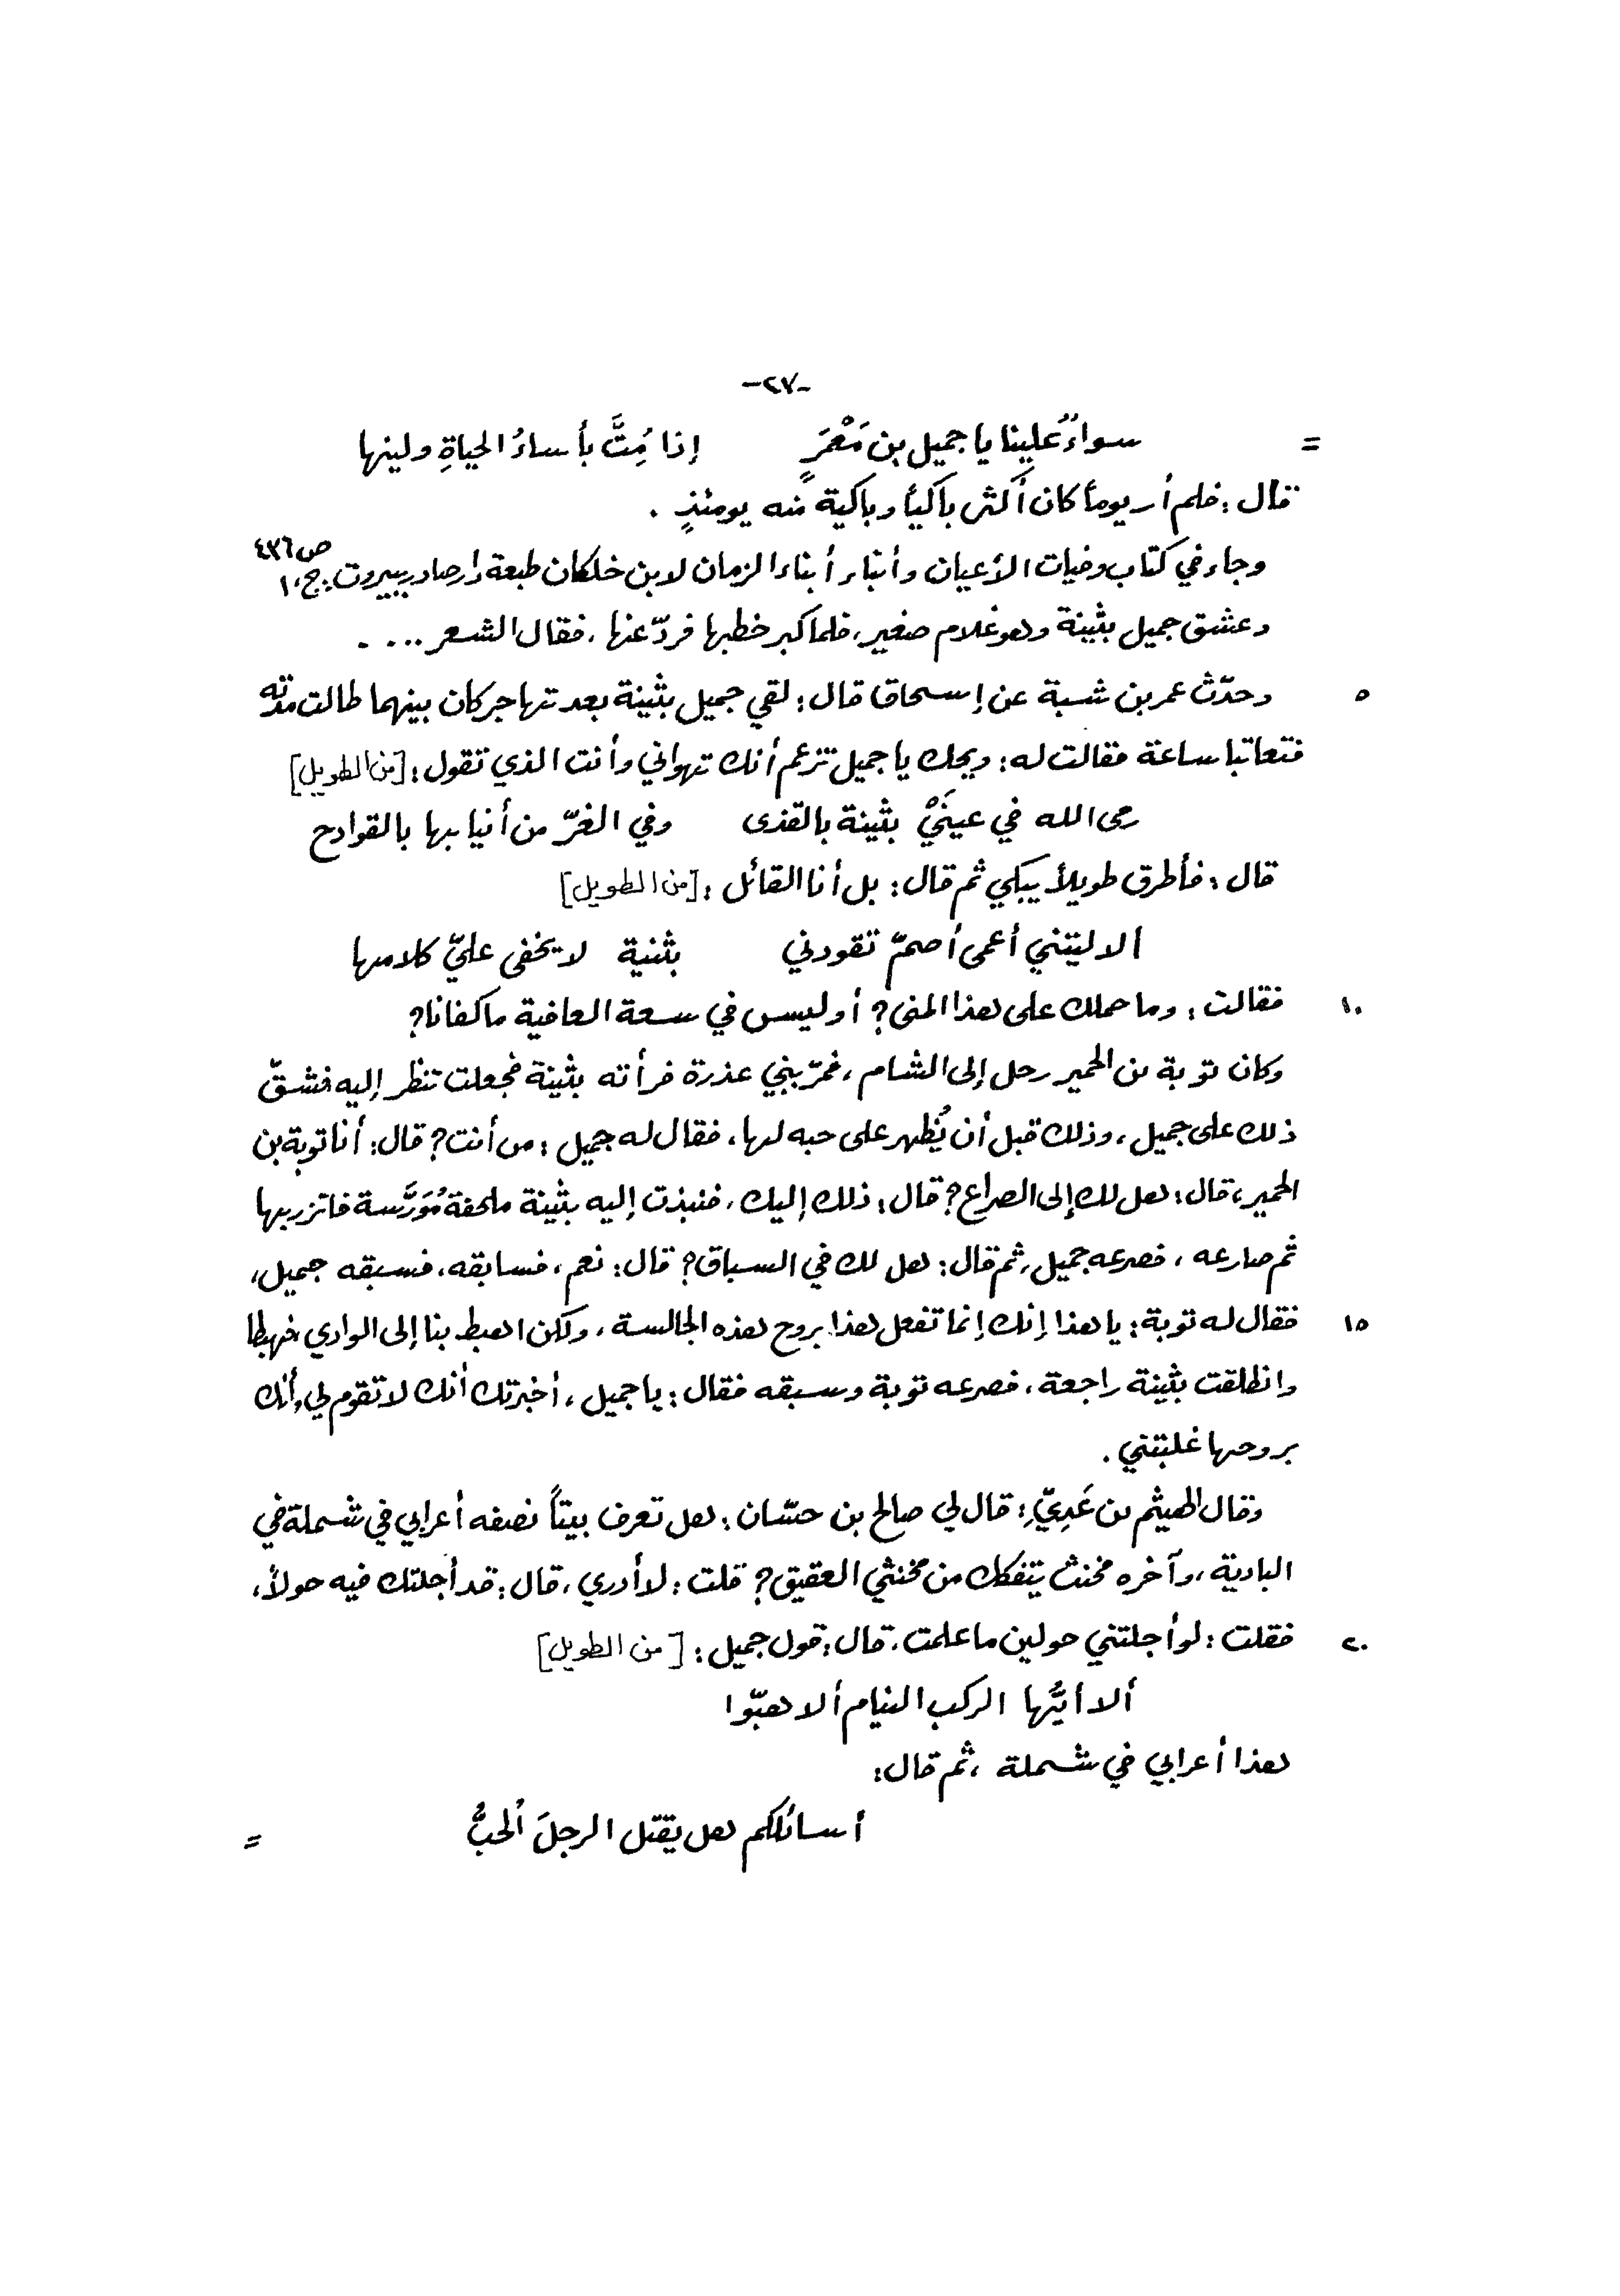 -٢٧-
= سواءٌ علينا يا جميل بن مَعْمَرٍ إذا مُِتَّ بأساءُ الحياةِ ولينها
قال : فلم أر يوماً كان أكثر باكياً وباكية منه يومئذٍ .
وجاء في كتاب وفيات الأعيان وأنباء أبناء الزمان لابن خلكان طبعة دار صادر ببيروت . ج، ١ ص ٤٣٦
وعشق جميل بثينة وهو غلام صغير ، فلما كبر خطبها فردّ عنها ، فقال الشعر ....
٥ وحدّث عمر بن شبة عن إسحاق قال : لقي جميل بثينة بعد تهاجر كان بينهما طالت مدّته
فتعاتبا ساعة فقالت له : ويحك يا جميل تزعم أنك تهواني وأنت الذي تقول : [من الطويل]
رمى الله في عينَيْ بثينة بالقذى وفي الغرّ من أنيابها بالقوادح
قال : فأطرق طويلاً يبكي ثم قال : بل أنا القائل : [من الطويل]
ألا ليتني أعمى أصمّ تقودني بثنية لا يخفى عليّ كلامها
١٠ فقالت : وما حملك على هذا المنى ؟ أوليس في سعة العافية ما كفانا ؟
وكان توبة بن الحمير رحل إلى الشام ، فمرّ ببني عذرة فرأته بثينة فجعلت تنظر إليه فشقّ
ذلك على جميل ، وذلك قبل أن يُظهر على حبه لها ، فقال له جميل : من أنت ؟ قال : أنا توبة بن
الحمير ، قال : هل لك إلى الصراع ؟ قال : ذلك إليك ، فنبذت إليه بثينة ملحفة مُوَرَّسة فاتزر بها
ثم صارعه ، فصرعه جميل ، ثم قال : هل لك في السباق ؟ قال : نعم ، فسابقه ، فسبقه جميل ،
١٥ فقال له توبة : يا هذا إنك إنما تفعل هذا بروح هذه الجالسة ، ولكن اهبط بنا إلى الوادي ، فهبطا
وانطلقت بثينة راجعة ، فصرعه توبة وسبقه فقال : يا جميل ، أخبرتك أنك لا تقوم لي وأنك
بروحها غلبتني .
وقال الهيثم بن عَدِيٍّ : قال لي صالح بن حسّان : هل تعرف بيتاً نصفه أعرابي في شملة في
البادية ، وآخره مخنث يتفكك من مخنثي العقيق ؟ قلت : لا أدري ، قال : قد أجلتك فيه حولاً ،
٢٠ فقلت : لو أجلتني حولين ما علمت ، قال : قول جميل : [من الطويل]
ألا أيُّها الركب النيام ألا هبّوا
هذا أعرابي في شملة ، ثم قال :
أسائلكم هل يقتل الرجلَ الحبُّ =